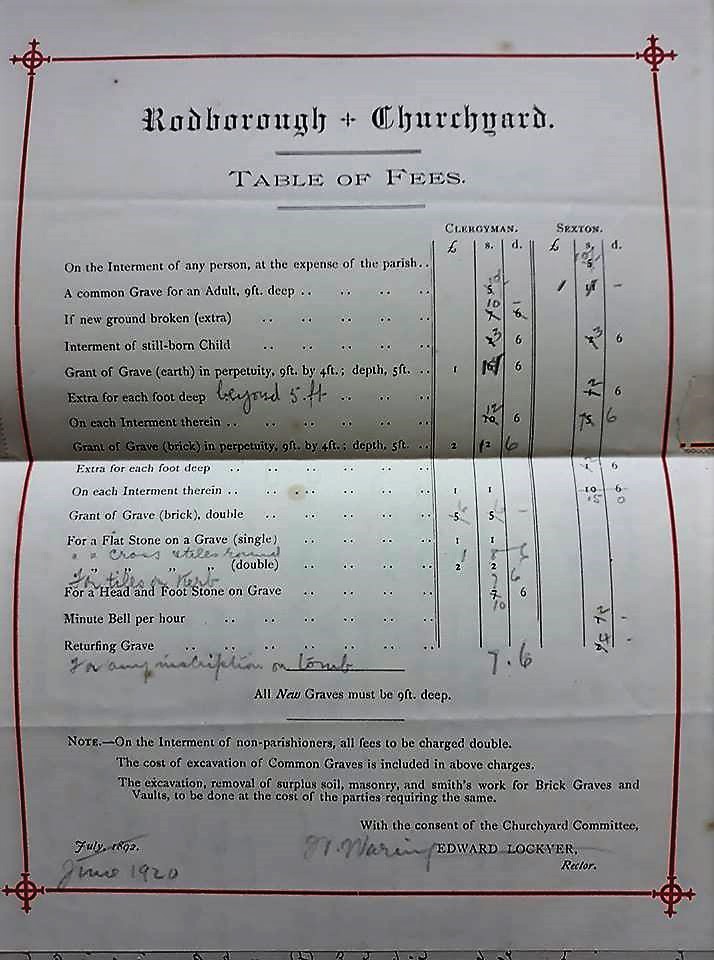 Rodborough + Churchyard.
TABLE OF FEES.
CLERGYMAN. SEXTON.
£ s. d. £ s. d.
On the Interment of any person, at the expense of the parish..
A common Grave for an Adult, 9ft. deep .. .. .. .. 5 –
If new ground broken (extra) .. .. .. .. 10 –
Interment of still-born Child .. .. .. .. 3 6 3 6
Grant of Grave (earth) in perpetuity, 9ft. by 4ft.; depth, 5ft. .. 1 6
Extra for each foot deep beyond 5.ft .. .. .. 2 6
On each Interment therein .. .. .. .. .. 12 6 6
Grant of Grave (brick) in perpetuity, 9ft. by 4ft.; depth, 5ft. .. 2 12 6
Extra for each foot deep .. .. .. .. .. 6
On each Interment therein .. .. .. .. .. 1 1 10 6
15 0
Grant of Grave (brick), double .. .. .. .. 5 5 –
For a Flat Stone on a Grave (single) .. .. .. 1 1
" " cross & tiles round 1 8 6
" " " " (double) .. .. .. 2 2
For tiles or Kerb 7 6
For a Head and Foot Stone on Grave .. .. .. 7 6
10
Minute Bell per hour .. .. .. .. .. 2 -
Returfing Grave .. .. .. .. .. .. -
For any inscription on tomb 7.6
All New Graves must be 9ft. deep.
NOTE.—On the Interment of non-parishioners, all fees to be charged double.
The cost of excavation of Common Graves is included in above charges.
The excavation, removal of surplus soil, masonry, and smith's work for Brick Graves and
Vaults, to be done at the cost of the parties requiring the same.
With the consent of the Churchyard Committee,
July, 1892. W. Waring EDWARD LOCKYER,
June 1920 Rector.